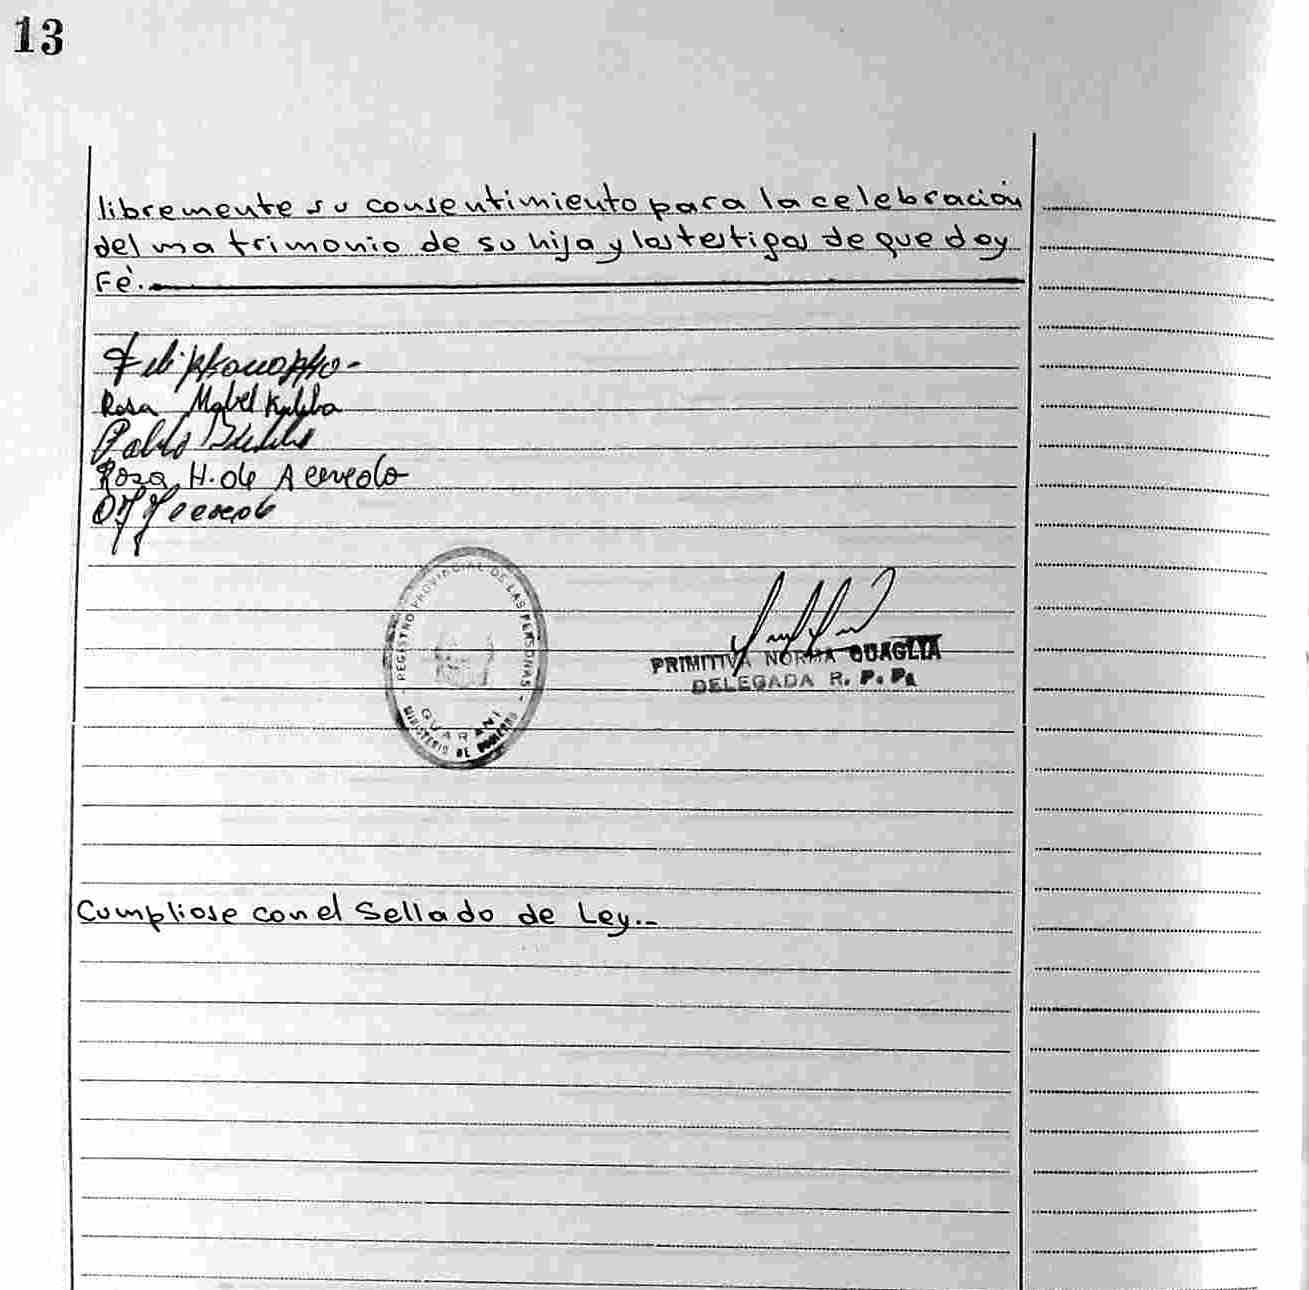 13
libremente su consentimiento para la celebración
del matrimonio de su hija y los testigos de que doy
Fé.
Rosa Mabel
Pablo
Rosa H. de Acevedo
REGISTRO PROVINCIAL DE LAS PERSONAS -
GUARANI
MINISTERIO DE GOBIERNO
PRIMITIVA NORMA QUAGLIA
DELEGADA R. P. P.
Cumpliose con el Sellado de Ley.-